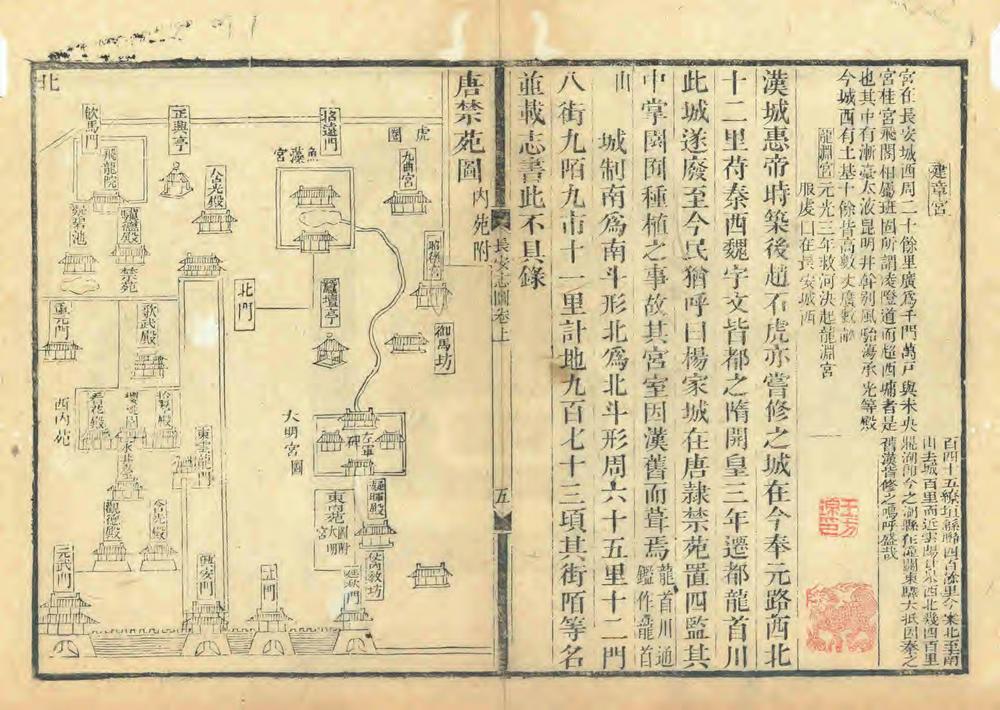 建章宮
宮在長安城西周二十餘里廣爲千門萬戸與未央
宮桂宮飛閣相屬班固所謂凌墱道而超西墉者是
也其中有漸臺太液昆明井幹别風駘蕩承光等殿
今城西有土基十餘皆高數丈廣數畝
龍淵宮元光三年救河決起龍淵宮
服虔在長安城西
百四十五繚垣緜聯四百餘里今案北至
山去城百里而近雲陽西北幾四百里
湖即今之湖縣在潼關東驛大抵因秦之
舊漢皆修之嗚呼盛哉
漢城惠帝時築後趙石虎亦嘗修之城在今奉元路西北
十二里苻秦西魏宇文皆都之隋開皇三年遷都龍首川
此城遂廢至今民猶呼曰楊家城在唐隷禁苑置四監其
中掌園囿種植之事故其宮室因漢舊而葺焉龍首川通
鑑作龍首
山
城制南爲南斗形北爲北斗形周六十五里十二門
八街九陌九市十一里計地九百七十三頃其街陌等名
並載志書此不具錄
長安志圖卷上
五
唐禁苑圖
內苑附
北
虎圈
九曲宮
昭德宮
御馬坊
魚藻宮
北門
大明宮圖
左軍碑
東內苑
圖附大明宮
教坊
飲馬門
飛龍院
正興亭
含光殿
驥德殿
禁苑
重元門
歌武殿
西內苑
拾翠殿
櫻桃園
東雲龍門
觀德殿
含光殿
元武門
興安門